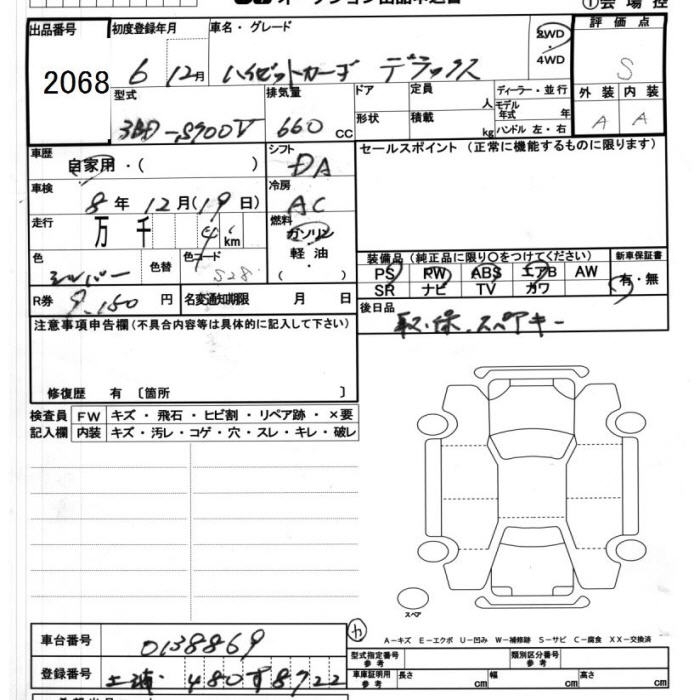 出品番号 2068
初度登録年月 6 12月
車名・グレード ハイゼットカーゴ デラックス
2WD・4WD
評価点 S
外装 A 内装 A
型式 3BD-S700V
排気量 660 cc
ドア 形状
定員 人
積載 kg
ディーラー・並行
モデル年式 年
ハンドル 左・右
車歴 自家用・( )
シフト DA
セールスポイント (正常に機能するものに限ります)
車検 8年 12月(19日)
冷房 AC
走行 万 千 4 km
燃料 ガソリン 軽油・( )
色 シルバー 色替 色コード S28
装備品 (純正品に限り○をつけてください)
PS PW ABS エアB AW
SR ナビ TV カワ
新車保証書 有・無
R券 9,150 円
名変通知期限 月 日
後日品 取・保、スペアキー
注意事項申告欄 (不具合内容等は具体的に記入して下さい)
修復歴 有 〔箇所 〕
検査員記入欄
FW キズ・飛石・ヒビ割・リペア跡・×要
内装 キズ・汚レ・コゲ・穴・スレ・キレ・破レ
スペア
車台番号 0138869
登録番号 土浦 480す8722
カ
A-キズ E-エクボ U-凹み W-補修跡 S-サビ C-腐食 XX-交換済
型式指定番号 参考
類別区分番号 参考
車庫証明用 参考 長さ cm 幅 cm 高さ cm